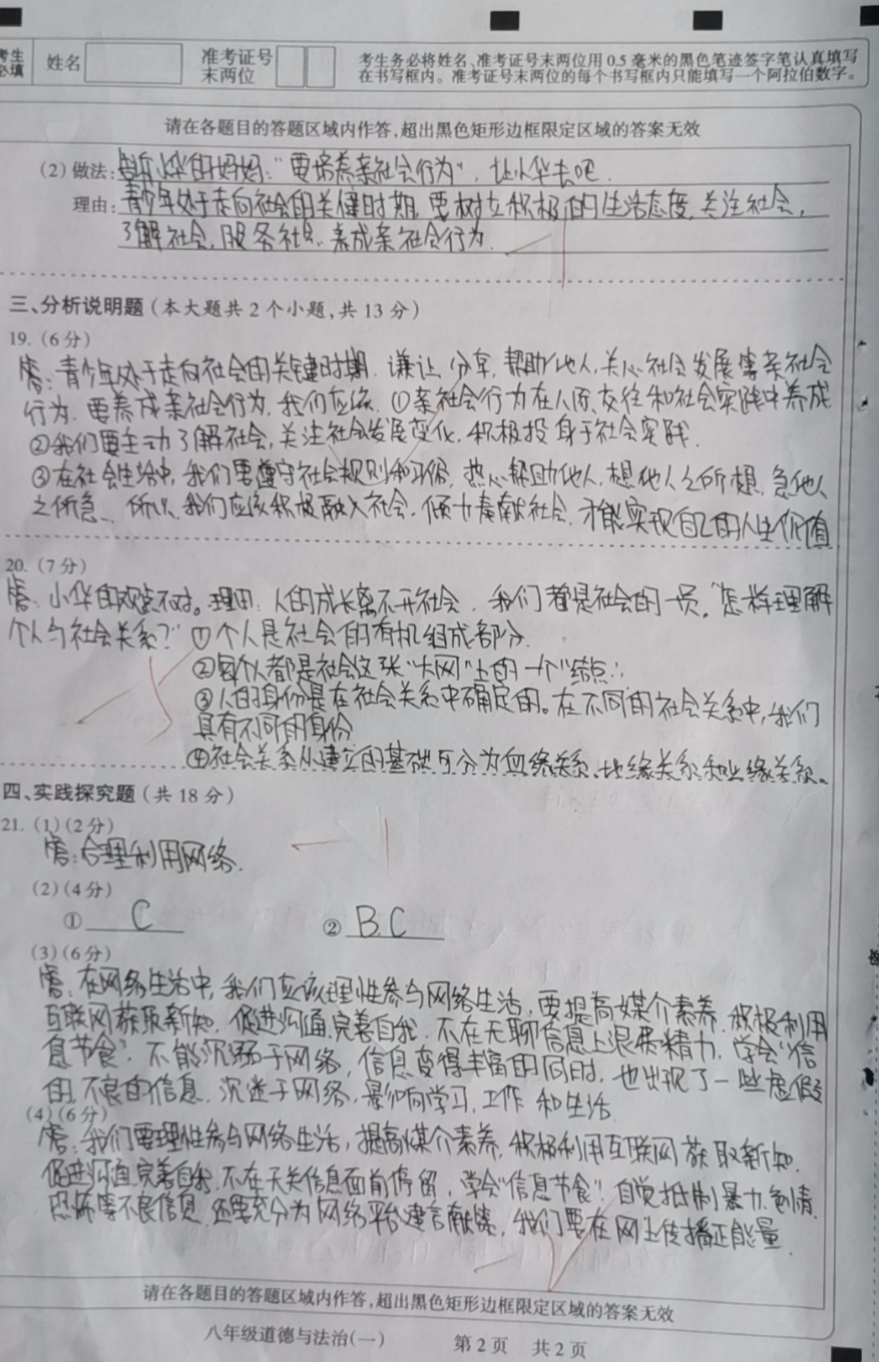 考生
必填
姓名
准考证号
末两位
考生务必将姓名、准考证号末两位用 0.5 毫米的黑色笔迹签字笔认真填写
在书写框内。准考证号末两位的每个书写框内只能填写一个阿拉伯数字。
请在各题目的答题区域内作答,超出黑色矩形边框限定区域的答案无效
(2) 做法: 告诉小华的妈妈:“要培养亲社会行为”,让小华去吧.
理由: 青少年处于走向社会的关键时期,要树立积极的生活态度,关注社会,
了解社会,服务社会,养成亲社会行为.
三、分析说明题(本大题共 2 个小题,共 13 分)
19. (6 分)
答:青少年处于走向社会的关键时期.谦让、分享,帮助他人,关心社会发展等亲社会
行为.要养成亲社会行为,我们应该.①亲社会行为在人际交往和社会实践中养成
②我们要主动了解社会,关注社会发展变化,积极投身于社会实践.
③在社会生活中,我们要遵守社会规则和习俗,热心帮助他人,想他人之所想,急他人
之所急、所以,我们应该积极融入社会,倾力奉献社会,才能实现自己的人生价值
20. (7 分)
答:小华的观点不对。理由:人的成长离不开社会.我们都是社会的一员.“怎样理解
个人与社会关系?”①个人是社会的有机组成部分.
②每个人都是社会这张“大网”上的一个“结点”.
③人的身份是在社会关系中确定的。在不同的社会关系中,我们
具有不同的身份
④社会关系从建立的基础可分为血缘关系、地缘关系和业缘关系。
四、实践探究题(共 18 分)
21. (1)(2 分)
答:合理利用网络.
(2)(4 分)
① C ② B.C
(3)(6 分)
答:在网络生活中,我们应该理性参与网络生活,要提高媒介素养,积极利用
互联网获取新知,促进沟通,完善自我.不在无聊信息上浪费精力,学会“信
息节食”.不能沉溺于网络,信息变得丰富的同时,也出现了一些虚假
的,不良的信息,沉迷于网络,影响学习,工作和生活.
(4)(6 分)
答:我们要理性参与网络生活,提高媒介素养,积极利用互联网获取新知.
促进沟通,完善自我.不在无关信息面前停留,学会“信息节食”.自觉抵制暴力、色情、
恐怖等不良信息.还要充分为网络平台建言献策,我们要在网上传播正能量.
请在各题目的答题区域内作答,超出黑色矩形边框限定区域的答案无效
八年级道德与法治(一) 第 2 页 共 2 页